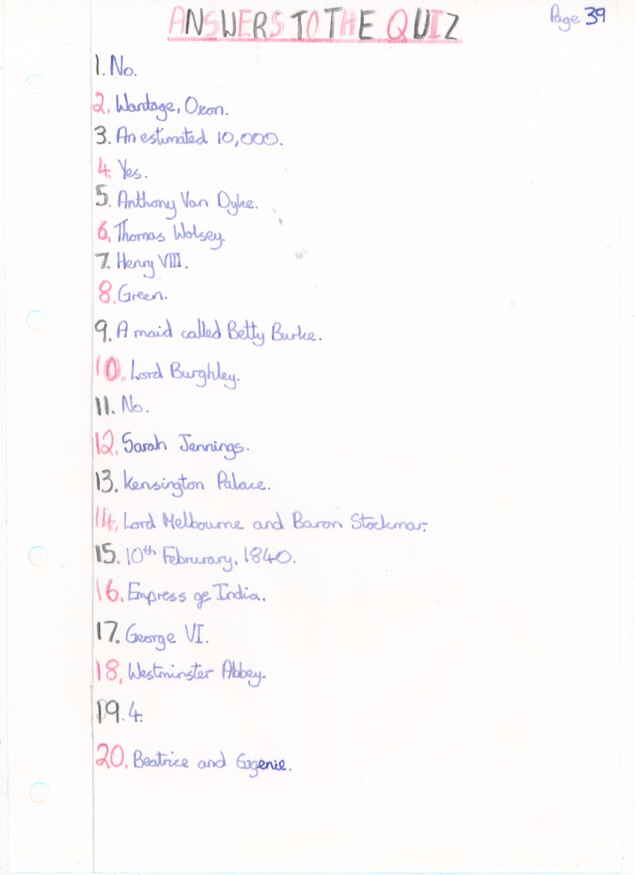 ANSWERS TO THE QUIZ
Page 39
1. No.
2. Wantage, Oxon.
3. An estimated 10,000.
4. Yes.
5. Anthony Van Dyke.
6. Thomas Wolsey.
7. Henry VIII.
8. Green.
9. A maid called Betty Burke.
10. Lord Burghley.
11. No.
12. Sarah Jennings.
13. Kensington Palace.
14. Lord Melbourne and Baron Stockmar.
15. 10th Februrary, 1840.
16. Empress of India.
17. George VI.
18. Westminster Abbey.
19. 4.
20. Beatrice and Eugenie.